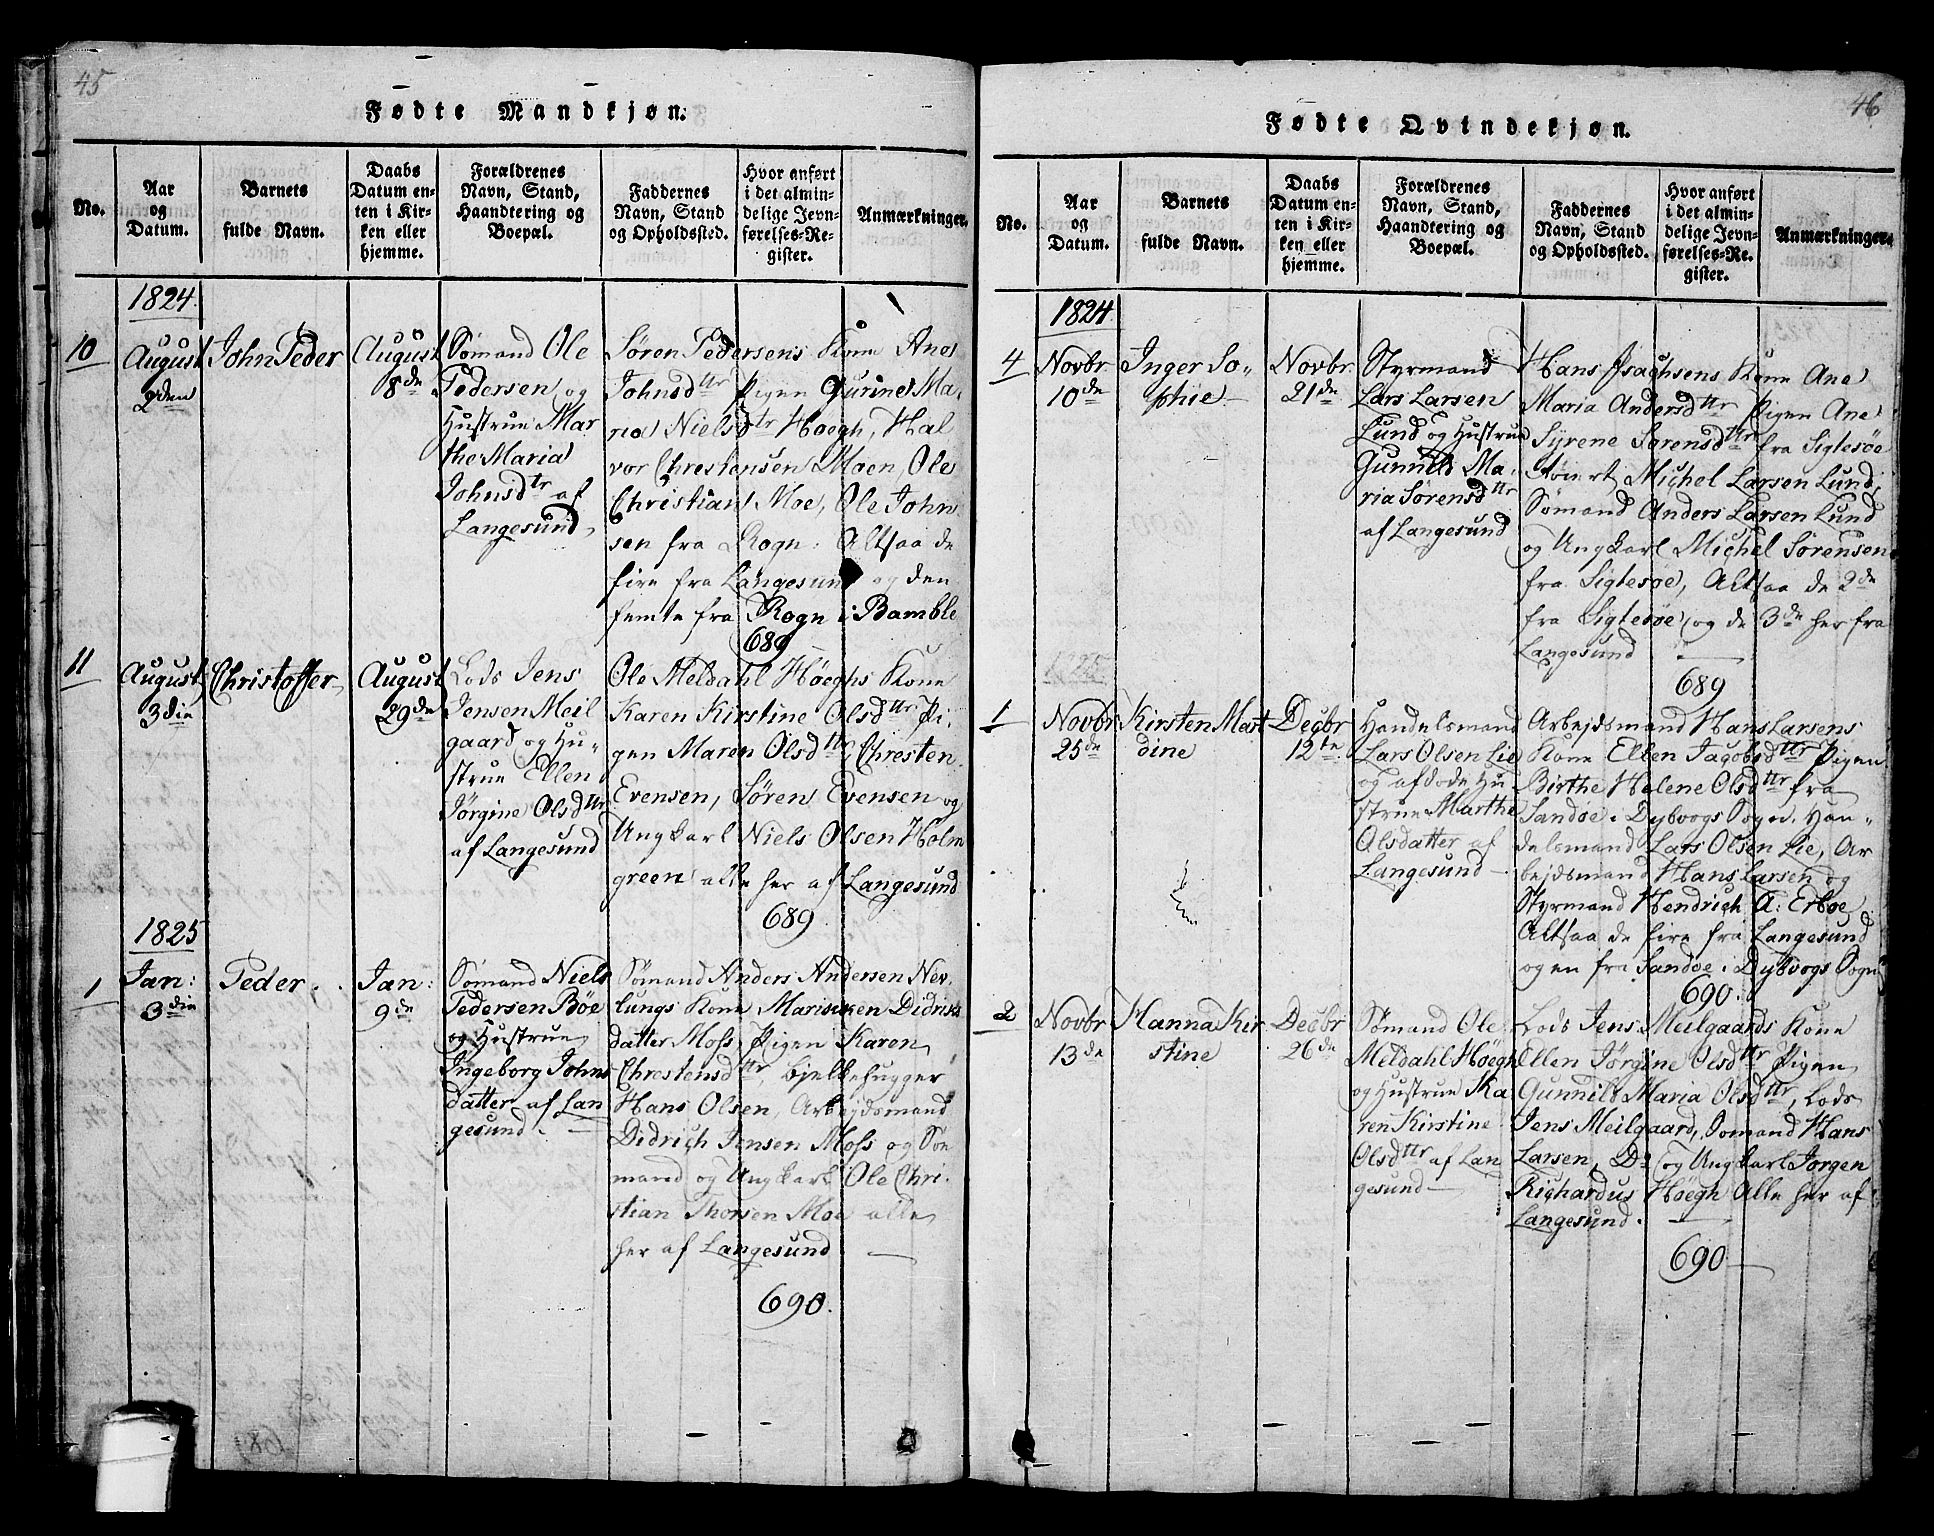 45
Fødte Mandkjøn.
No.
Aar
og
Datum.
Barnets
fulde Navn.
Daabs
Datum en-
ten i Kir-
ken eller
hjemme.
Forældrenes
Navn, Stand,
Haandtering og
Boepæl.
Faddernes
Navn, Stand
og Opholdssted.
Hvor anført
i det almin-
delige Jevn-
førelses-Re-
gister.
Anmærkninger.
1824
10
August
2den
John Peder
August
8de
Sømand Ole
Pedersen og
Hustrue Mar
the Maria
Johnsdtr af
Langesund
Søren Pedersens Kone Ane
Johnsdttr Pigen Gurine Ma-
ria Nielsdtr Høegh, Hal
vor Chrestensen Moen, Ole
Christian Moe, Ole John
sen fra Rogn: Altsaa de
fire fra Langesund og den
femte fra Rogn i Bamble
689
11
August
3die
Christoffer
August
29de
Lods Jens
Jensen Meil
gaard og Hu-
strue Ellen
Jørgine Olsdttr
af Langesund
Ole Meldahl Høeghs Kone
Karen Kirstine Olsdttr Pi-
gen Maren Olsdttr, Chresten
Evensen, Søren Evensen og
Ungkarl Niels Olsen Holm
green alle her af Langesund
689
1825
1
Jan:
3die
Peder
Jan:
9de
Sømand Niels
Pedersen Böe
og Hustrue
Ingeborg Johns
datter af Lan
gesund.
Sømand Anders Andersen Nev-
lungs Kone Marisken Didriks
datter Moss, Pigen Karen
Chrestensdttr, Bjelkehugger
Hans Olsen, Arbejdsmand
Didrich Jensen Moss og Søe
mand og Ungkarl Ole Chri-
stian Thorsen Moe alle
her af Langesund
690.
46
Fødte Qvindekjøn.
No.
Aar
og
Datum.
Barnets
fulde Navn.
Daabs
Datum en-
ten i Kir-
ken eller
hjemme.
Forældrenes
Navn, Stand,
Haandtering og
Boepæl.
Faddernes
Navn, Stand
og Opholdssted.
Hvor anført
i det almin-
delige Jevn-
førelses-Re-
gister.
Anmærkninger.
1824
4
Novbr
10de
Inger So-
phie
Novbr
21de
Styrmand
Lars Larsen
Lund og Hustrue
Gunnild Ma-
ria Sørensdttr
af Langesund
Hans Isachsens Kone Ane
Maria Andersdttr Pigen Ane
Syrene Sørensdttr fra Sigtesøe
Michel Larsen Lund,
Sømand Anders Larsen Lund
og Ungkarl Michel Sørensen
fra Sigtesøe, Altsaa de 2de
fra Sigtesøe og de 3de her fra
Langesund
689
1825
1
Novbr
25de
Kirsten Mart
dine
Decbr
12te
Handelsmand
Lars Olsen Lie
og afdøde Hu
strue Marthe
Olsdatter af
Langesund
Arbejdsmand Hans Larsens
Kone Ellen Jacobsdttr Pigen
Birthe Helene Olsdttr fra
Sandøe i Dybvogs Sogn, Han-
delsmand Lars Olsen Lie, Ar
bejdsmand Hans Larsen og
Styrmand Hendrich A: Erboe
Altsaa de fire fra Langesund
og en fra Sandøe i Dybvogs Sogn
690.
2
Novbr
13de
Hanna Kir
stine
Decbr
26de
Sømand Ole
Meldahl Høegh
og Hustrue Ka
ren Kirstine
Olsdttr af Lan
gesund
Lods Jens Meilgaards Kone
Ellen Jørgine Olsdttr Pigen
Gunnild Maria Olsdttr, Lods
Jens Meilgaard, Somand Hans
Larsen, Do og Ungkarl Jorgen
Richardus Høegh Alle her af
Langesund.
690